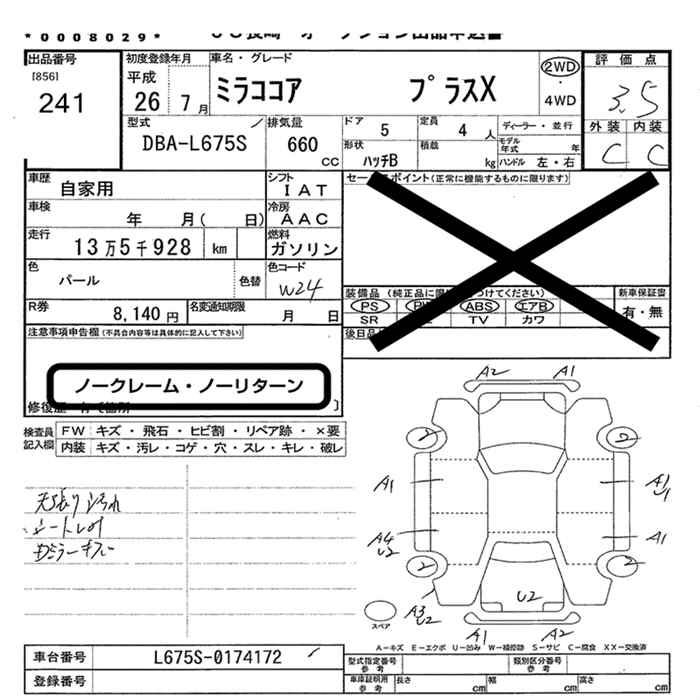 *0008029*
出品番号
[856]
241
初度登録年月
平成
26 7月
車名・グレード
ミラココア プラスX
2WD
・
4WD
評価点
3.5
外装 内装
C C
型式
DBA-L675S
排気量
660
CC
ドア 5
定員 4人
ディーラー・並行
形状
ハッチB
積載
kg
モデル年式 年
ハンドル 左・右
車歴
自家用
シフト
IAT
車検
年 月( 日)
冷房
AAC
走行
13万5千928 km
燃料
ガソリン
色
パール
色替
色コード
W24
R券
8,140円
名変通知期限
月 日
セールスポイント(正常に機能するものに限ります)
新車保証書
有・無
PS ABS エアB
SR TV カワ
注意事項申告欄(不具合内容等は具体的に記入して下さい)
ノークレーム・ノーリターン
検査員
記入欄
FW キズ・飛石・ヒビ割・リペア跡・×要
内装 キズ・汚レ・コゲ・穴・スレ・キレ・破レ
A2 A1
2 2
A1 A1
U1
A4
U2
A1
2 2
U2
A3
U2
スペア
A1 A2
A-キズ E-エクボ U-凹み W-補修跡 S-サビ C-腐食 XX-交換済
車台番号
L675S-0174172
登録番号
型式指定番号
参考
類別区分番号
参考
車庫証明用
参考
長さ cm 幅 cm 高さ cm